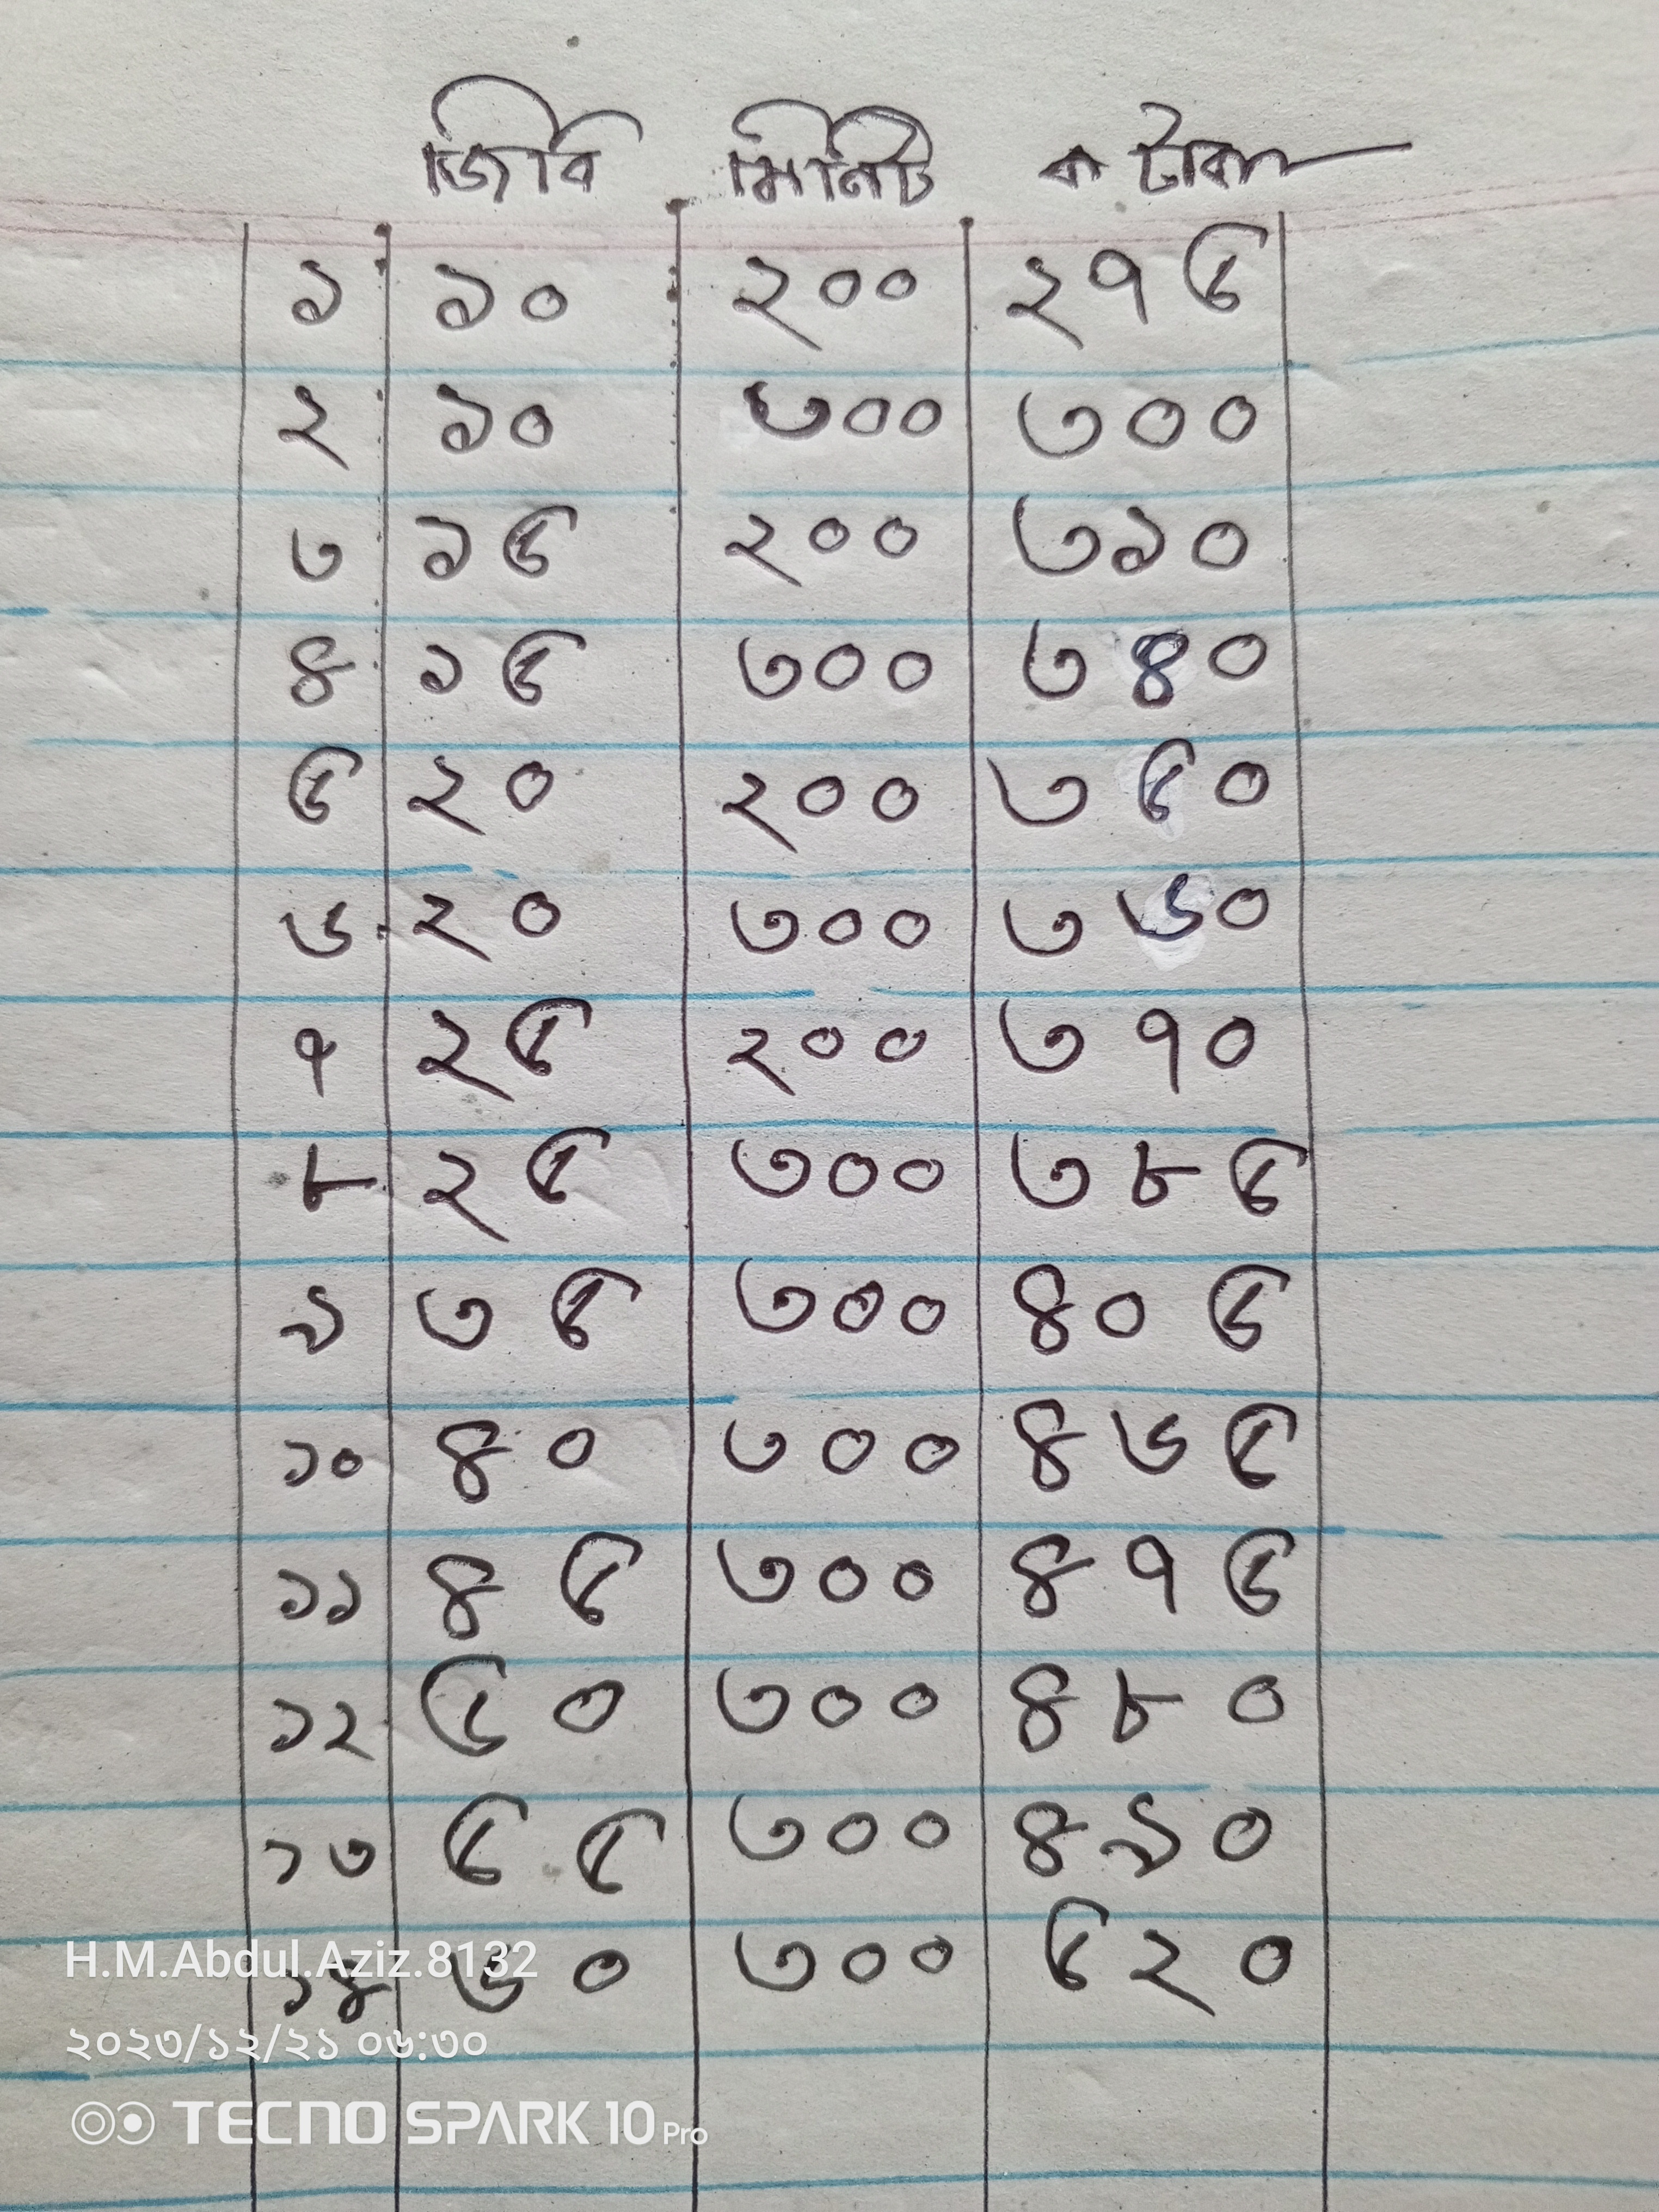 জিবি মিনিট ক টাকা
১ ১০ ২০০ ২৭৫
২ ১০ ৩০০ ৩০০
৩ ১৫ ২০০ ৩১০
৪ ১৫ ৩০০ ৩৪০
৫ ২০ ২০০ ৩৫০
৬ ২০ ৩০০ ৩৬০
৭ ২৫ ২০০ ৩৭০
৮ ২৫ ৩০০ ৩৮৫
৯ ৩৫ ৩০০ ৪০৫
১০ ৪০ ৩০০ ৪৬৫
১১ ৪৫ ৩০০ ৪৭৫
১২ ৫০ ৩০০ ৪৮০
১৩ ৫৫ ৩০০ ৪৯০
১৪ ৬০ ৩০০ ৫২০
H.M.Abdul.Aziz.8132
২০২৩/১২/২১ ০৬:৩০
TECNO SPARK 10 Pro